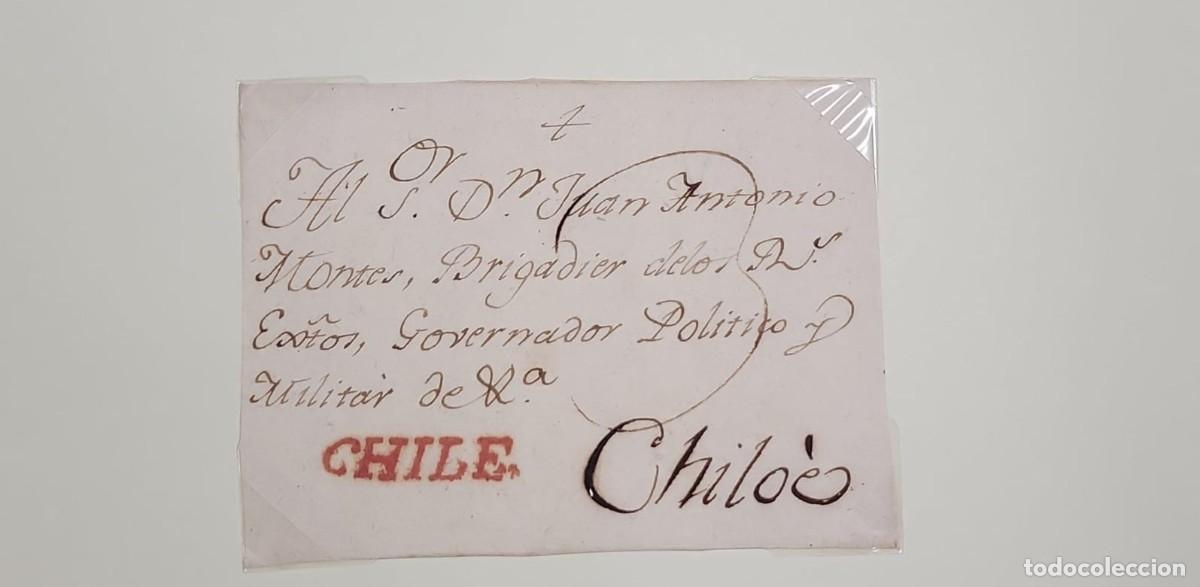 Al S.or D.n Juan Antonio
Montes, Brigadier delos R.s
Extos, Governador Politico y
Militar de &.a
CHILE.
Chiloè
todocoleccion